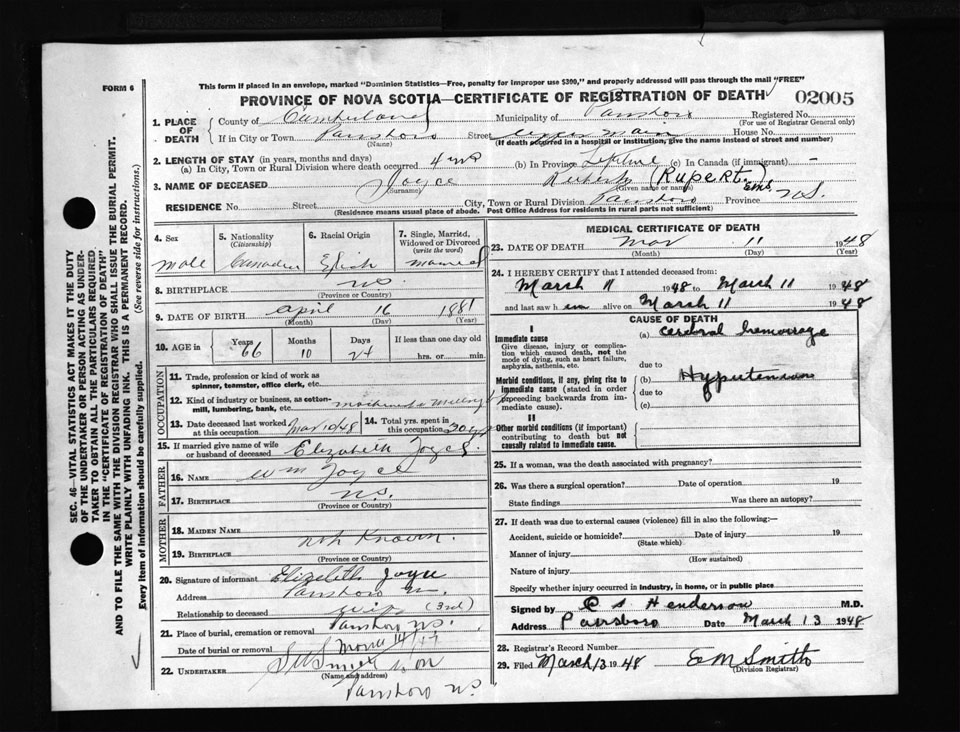 This form if placed in an envelope, marked "Dominion Statistics—Free, penalty for improper use $300," and properly addressed will pass through the mail "FREE"
FORM 6
PROVINCE OF NOVA SCOTIA—CERTIFICATE OF REGISTRATION OF DEATH 02005
1. PLACE OF DEATH County of Cumberland Municipality of Parrsboro Registered No.
(For use of Registrar General only)
If in City or Town Parrsboro Street Main House No.
(Name) (If death occurred in a hospital or institution, give the name instead of street and number)
2. LENGTH OF STAY (in years, months and days)
(a) In City, Town or Rural Division where death occurred 4 (b) In Province Lifetime (c) In Canada (if immigrant) -
3. NAME OF DECEASED Joyce (Rupert.)
(Surname) (Given name or names) EMS
RESIDENCE No. Street City, Town or Rural Division Parrsboro Province N.S.
(Residence means usual place of abode. Post Office Address for residents in rural parts not sufficient)
4. Sex Male
5. Nationality (Citizenship) Canadian
6. Racial Origin
7. Single, Married, Widowed or Divorced (write the word) Married
8. BIRTHPLACE N.S.
(Province or Country)
9. DATE OF BIRTH April 16 1881
(Month) (Day) (Year)
10. AGE in Years 66 Months 10 Days If less than one day old
hrs. or min.
OCCUPATION
11. Trade, profession or kind of work as spinner, teamster, office clerk, etc.
12. Kind of industry or business, as cotton-mill, lumbering, bank, etc.
13. Date deceased last worked at this occupation Mar 10/48 14. Total yrs. spent in this occupation
15. If married give name of wife or husband of deceased Elizabeth Joyce
FATHER
16. NAME Wm Joyce
17. BIRTHPLACE N.S.
(Province or Country)
MOTHER
18. MAIDEN NAME
not Known.
19. BIRTHPLACE
(Province or Country)
20. Signature of informant Elizabeth Joyce
Address Parrsboro N.S.
Relationship to deceased wife (3rd)
21. Place of burial, cremation or removal Parrsboro N.S.
Date of burial or removal
22. UNDERTAKER
(Name and address)
Parrsboro N.S.
MEDICAL CERTIFICATE OF DEATH
23. DATE OF DEATH Mar 11 1948
(Month) (Day) (Year)
24. I HEREBY CERTIFY that I attended deceased from:
March 11 1948 to March 11 1948
and last saw him alive on March 11 1948
CAUSE OF DEATH
I
Immediate cause
Give disease, injury or complication which caused death, not the mode of dying, such as heart failure, asphyxia, asthenia, etc.
(a) Cerebral hemorrage
due to
Morbid conditions, if any, giving rise to immediate cause (stated in order proceeding backwards from immediate cause).
(b) Hypertension
due to
(c)
II
Other morbid conditions (if important) contributing to death but not causally related to immediate cause.
25. If a woman, was the death associated with pregnancy?
26. Was there a surgical operation? Date of operation 19
State findings Was there an autopsy?
27. If death was due to external causes (violence) fill in also the following:—
Accident, suicide or homicide? Date of injury 19
(State which)
Manner of injury
(How sustained)
Nature of injury
Specify whether injury occurred in industry, in home, or in public place
Signed by C S Henderson M.D.
Address Parrsboro Date March 13 1948
28. Registrar's Record Number
29. Filed March 13 1948 E M Smith
(Division Registrar)
SEC. 46—VITAL STATISTICS ACT MAKES IT THE DUTY
OF THE UNDERTAKER OR PERSON ACTING AS UNDER-
TAKER TO OBTAIN ALL THE PARTICULARS REQUIRED
IN THE "CERTIFICATE OF REGISTRATION OF DEATH"
AND TO FILE THE SAME WITH THE DIVISION REGISTRAR WHO SHALL ISSUE THE BURIAL PERMIT.
WRITE PLAINLY WITH UNFADING INK. THIS IS A PERMANENT RECORD.
Every item of information should be carefully supplied. (See reverse side for instructions.)